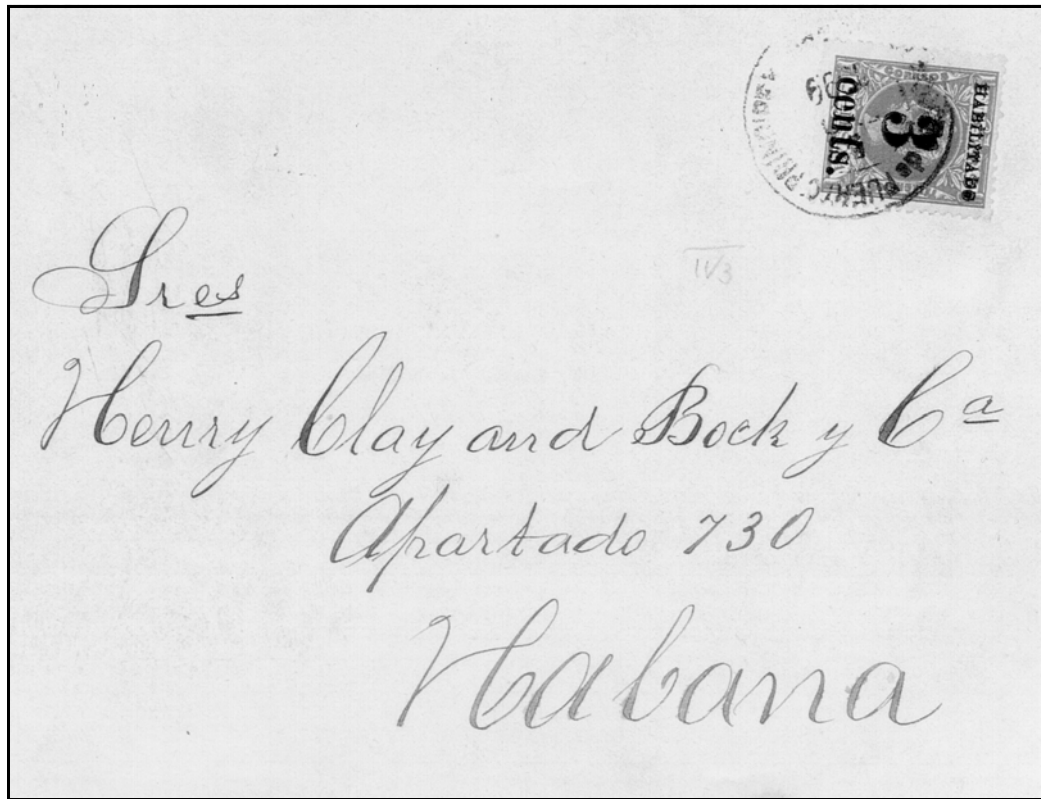 CORREOS
HABILITADO
3
cents.
de
IV/3
Sres
Henry Clay and Bock y Ca
Apartado 730
Habana